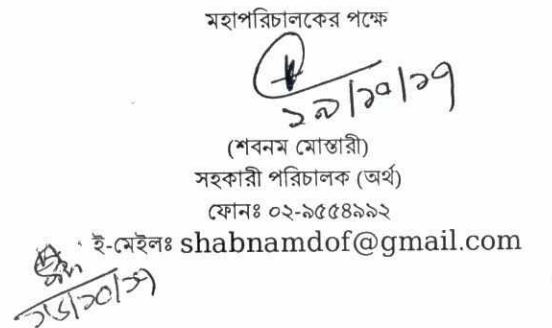 মহাপরিচালকের পক্ষে
১৯/১০/১৭
(শবনম মোস্তারী)
সহকারী পরিচালক (অর্থ)
ফোনঃ ০২-৯৫৫৪৯৯২
ই-মেইলঃ shabnamdof@gmail.com